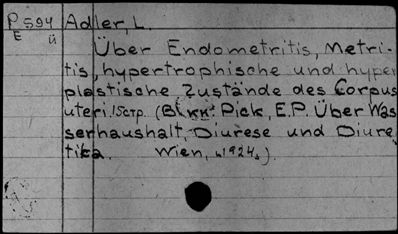 P 594 Adler, L.
E ü
Über Endometritis, Metri-
tis, hypertrophische und hyper
plastische Zustände des Corpus
uteri. (Pick, E.P. Über Was
serhaushalt, Diurese und Diure
tika. Wien, 1924.).